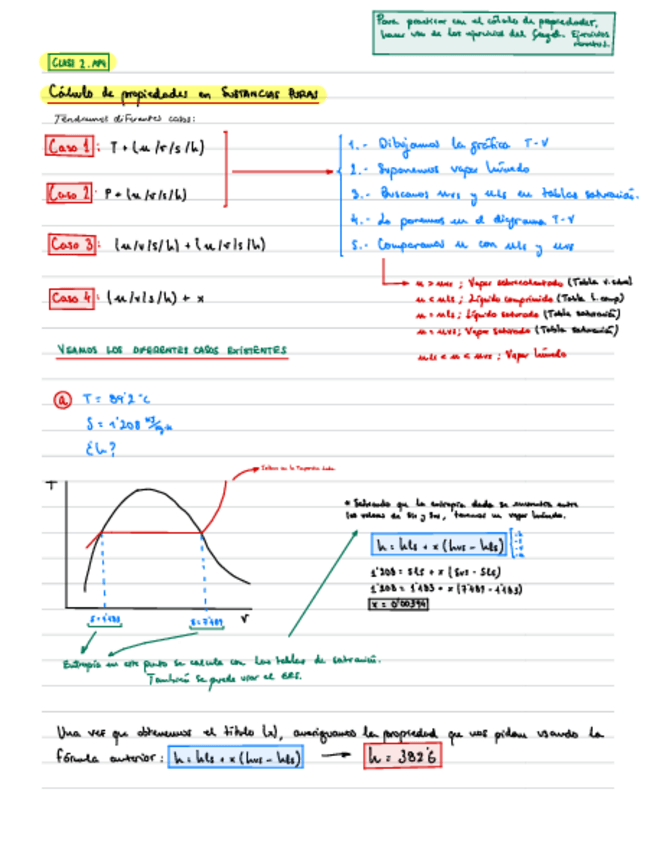 Para practicar con el cálculo de propiedades,
hacer uso de los ejercicios del Cengel. Ejercicios
CLASE 2. APP
Cálculo de propiedades en SUSTANCIAS PURAS
Tendremos diferentes casos:
Caso 1: T + (u/v/s/h)
Caso 2: P + (u/v/s/h)
Caso 3: (u/v/s/h) + (u/v/s/h)
Caso 4: (u/v/s/h) + x
1.- Dibujamos la gráfica T-V
2.- Suponemos vapor húmedo
3.- Buscamos uvs y uls en tablas saturación.
4.- Lo ponemos en el diagrama T-V
5.- Comparamos u con uls y uvs
u > uvs ; Vapor sobrecalentado (Tabla v.sobre)
u < uls ; Líquido comprimido (Tabla l.comp)
u = uls ; Líquido saturado (Tabla saturación)
u = uvs ; Vapor saturado (Tabla saturación)
uls < u < uvs ; Vapor húmedo
VEAMOS LOS DIFERENTES CASOS EXISTENTES
a T = 89'2 ºC
S = 1'208 kJ/kg·K
¿h?
T
V
S = 1'183
S = 7'489
* Sabiendo que la entropía dada se encuentra entre
los valores de Sls y Svs, tenemos un vapor húmedo.
h = hls + x (hvs - hls)
1'208 = Sls + x (Svs - Sls)
1'208 = 1'183 + x (7'489 - 1'183)
x = 0'00394
Entropía en este punto se calcula con las tablas de saturación.
También se puede usar el EES.
Una vez que obtenemos el título (x), averiguamos la propiedad que nos piden usando la
fórmula anterior: h = hls + x (hvs - hls) → h = 382'6